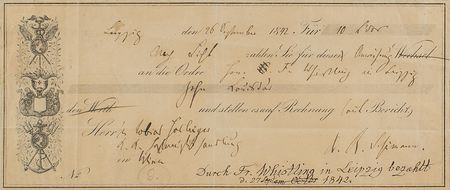 Leipzig den 26 September 1842. Für 10 L'dor
Nach Sicht zahlen Sie für diesen Wechsel
an die Ordre Herrn Fr. Whistling in Leipzig
Zehn Louisdor
den Werth und stellen es auf Rechnung laut Bericht.
Herrn Tobias Haslinger
k. k. Hofmusikhandlung
in Wien
R. Schumann
Durch Fr. Whistling in Leipzig bezahlt
d. 27 1842.